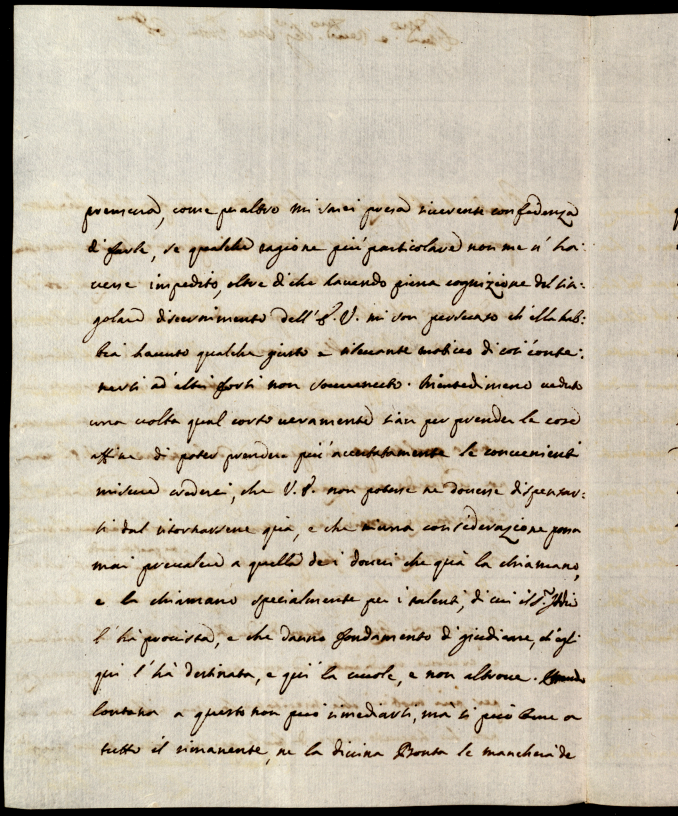 premura, come per altro mi sarei presa riverente confidenza
di farle, se qualche ragione più particolare non me n' ha:
vesse impedito, oltre di che havendo piena cognizione del sin:
golare discernimento dell' V. mi son persuaso ch' ella hab:
bia hauuto qualche giusto e rileuante motiuo di così conte:
nersi ad altri non Nientedimeno ueduto
una uolta qual corso ueramente sian per prender le cose
affine di poter prendere più accertatamente le conuenienti
misure crederei, che V. P. non potesse ne douesse dispensar:
si dal ritornarsene quà, e che niuna considerazione possa
mai preualere a quella dei doueri che quà la chiamano,
e la chiamano specialmente per i talenti, di cui il Sr. Iddio
l' hà prouista, e che danno fondamento di giudicare, ch' egli
qui l' hà destinata, e qui la uuole, e non altroue.
lontana a questo non può rimediarsi, mà si può bene a
tutto il rimanente, ne la diuina Bontà le mancherà de